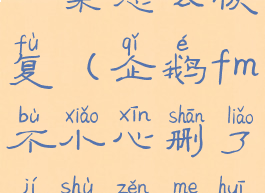 fù qǐ é
复（企鹅fm
bù xiǎo xīn shān liǎo
不小心删了
jí shù zěn me huī